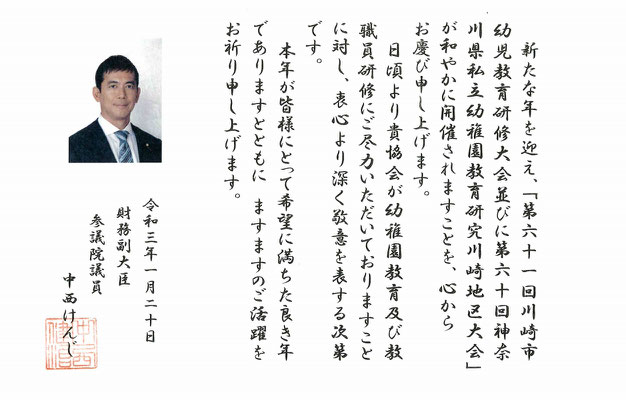 新たな年を迎え、「第六十一回川崎市
幼児教育研修大会並びに第六十回神奈
川県私立幼稚園教育研究川崎地区大会」
が和やかに開催されますことを、心から
お慶び申し上げます。
日頃より貴協会が幼稚園教育及び教
職員研修にご尽力いただいておりますこと
に対し、衷心より深く敬意を表する次第
です。
本年が皆様にとって希望に満ちた良き年
でありますとともに ますますのご活躍を
お祈り申し上げます。
令和三年一月二十日
財務副大臣
参議院議員
中西けんじ
中西
健治